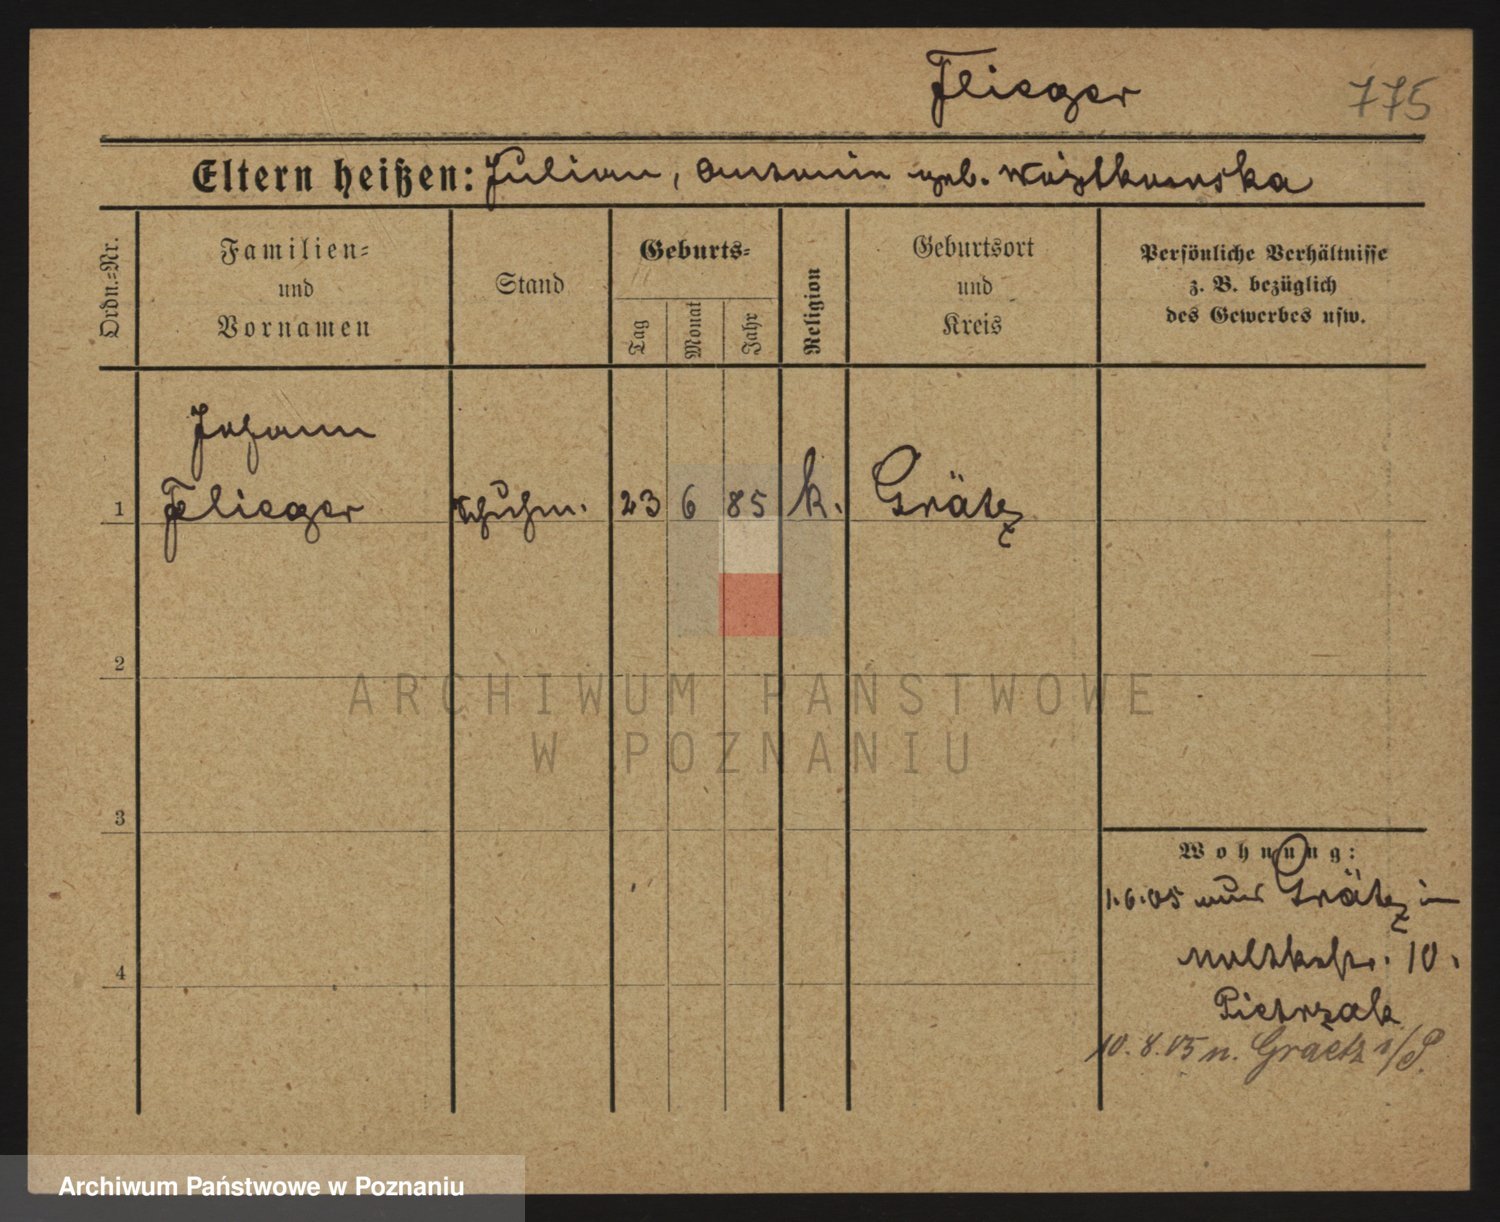 Flieger 775
Eltern heißen: Julian, Antonie geb. Woytkowska
Ordn.-Nr.
Familien-
und
Vornamen
Stand
Geburts-
Tag
Monat
Jahr
Religion
Geburtsort
und
Kreis
Persönliche Verhältnisse
z. B. bezüglich
des Gewerbes usw.
Johann
1 Flieger Schuhm. 23 6 85 k. Grätz
2
ARCHIWUM PAŃSTWOWE
W POZNANIU
3
Wohnung:
1.6.05 Grätz in
Moltkestr. 10.
4
Pietrzak
10.8.05 n. Graetz i/P.
Archiwum Państwowe w Poznaniu